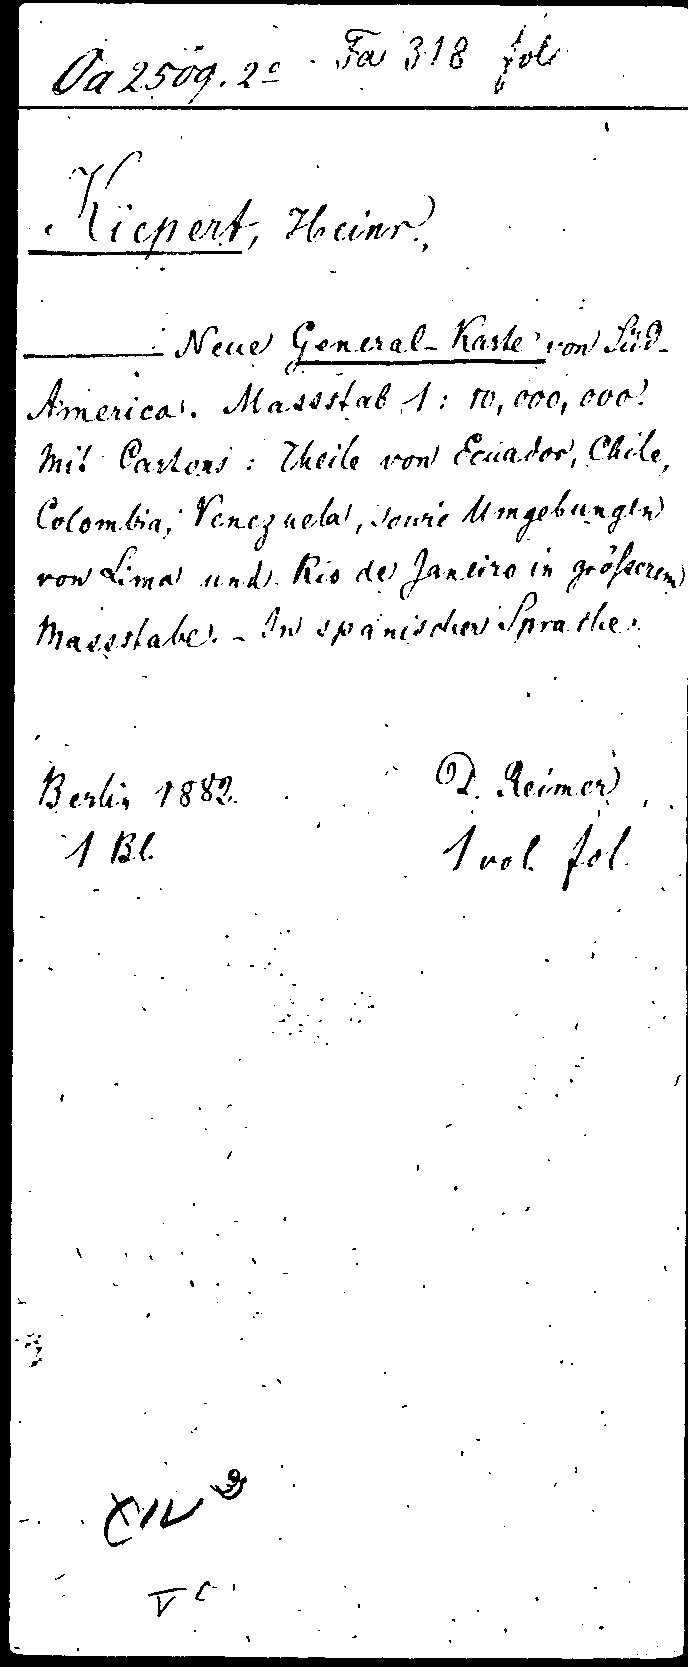 Oa 2509. 2º Fa 318 fol
Kiepert, Heinr.,
——— Neue General-Karte von Süd-
America. Massstab 1: 10,000,000.
Mit Cartons: Theile von Ecuador, Chile,
Colombia, Venezuela, sowie Umgebungen
von Lima und Rio de Janeiro in größerem
Massstabe. - In spanischer Sprache.
Berlin 1882. D. Reimer
1 Bl. 1 vol. fol.
V c